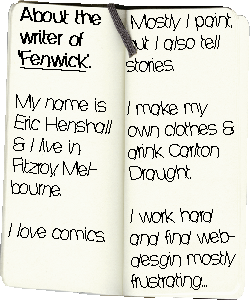 About the
writer of
'Fenwick'.
My name is
Eric Henshall
& I live in
Fitzroy, Mel-
bourne.
I love comics.
Mostly I paint,
but I also tell
stories.
I make my
own clothes &
drink Carlton
Draught.
I work hard
and find web-
desgin mostly
frustrating...